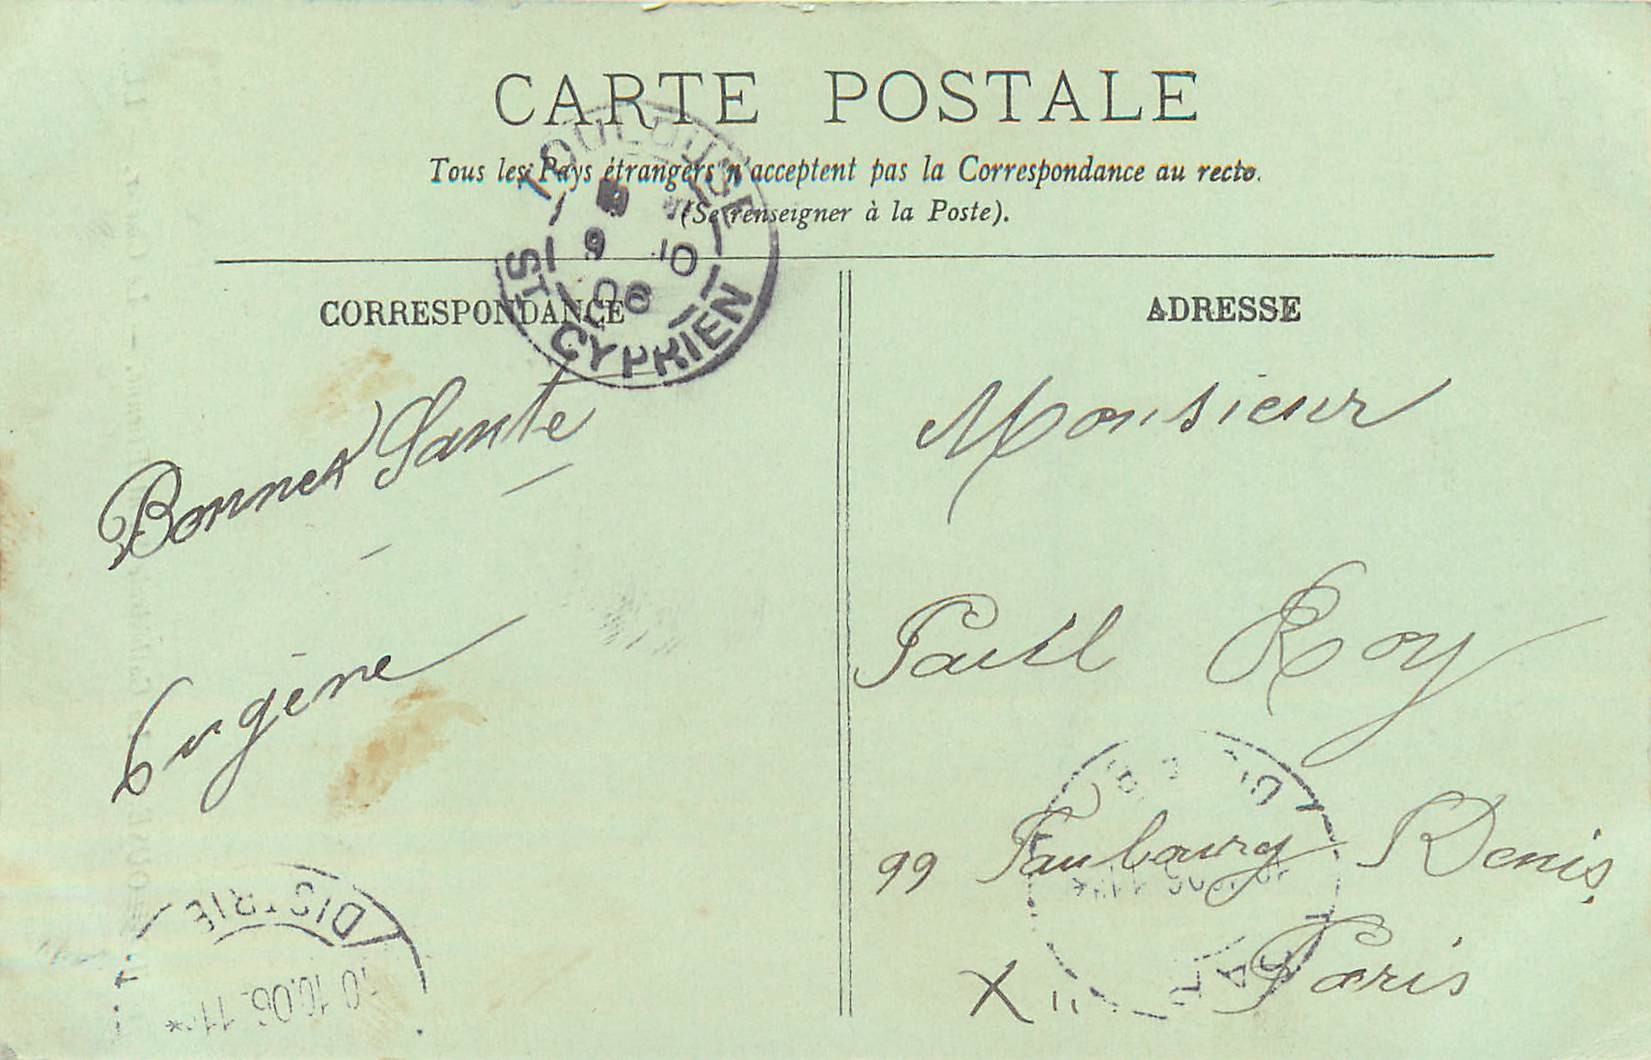 CARTE POSTALE
Tous les Pays étrangers n'acceptent pas la Correspondance au recto.
(Se renseigner à la Poste).
TOULOUSE
9 10
06
ST CYPRIEN
CORRESPONDANCE
Bonnes Sante
Eugène
ADRESSE
Monsieur
Paul Roy
99 Faubourg Denis
Paris
X
DISTRIB
10 10.06. 11